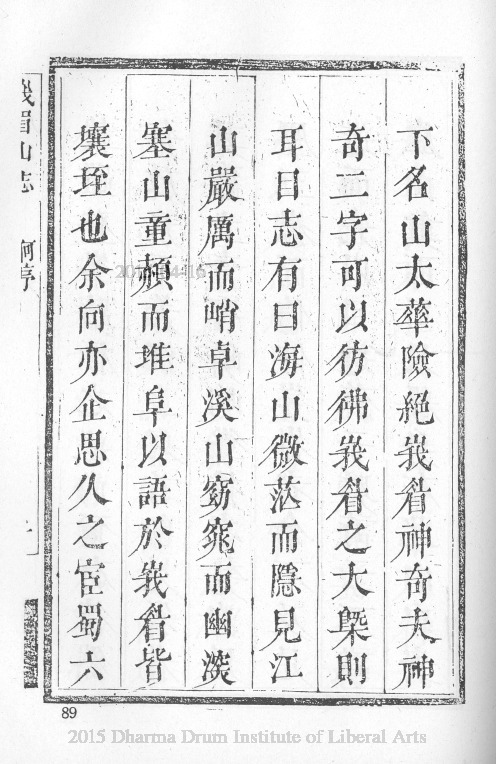 下名山太華險絕峩眉神奇夫神
奇二字可以彷彿峩眉之大槩則
耳目志有曰海山微茫而隱見江
山嚴厲而哨卓溪山窈窕而幽深
塞山童赬而堆阜以語於峩眉皆
壤垤也余向亦企思久之宦蜀六
峩眉山志
89
2015 Dharma Drum Institute of Liberal Arts